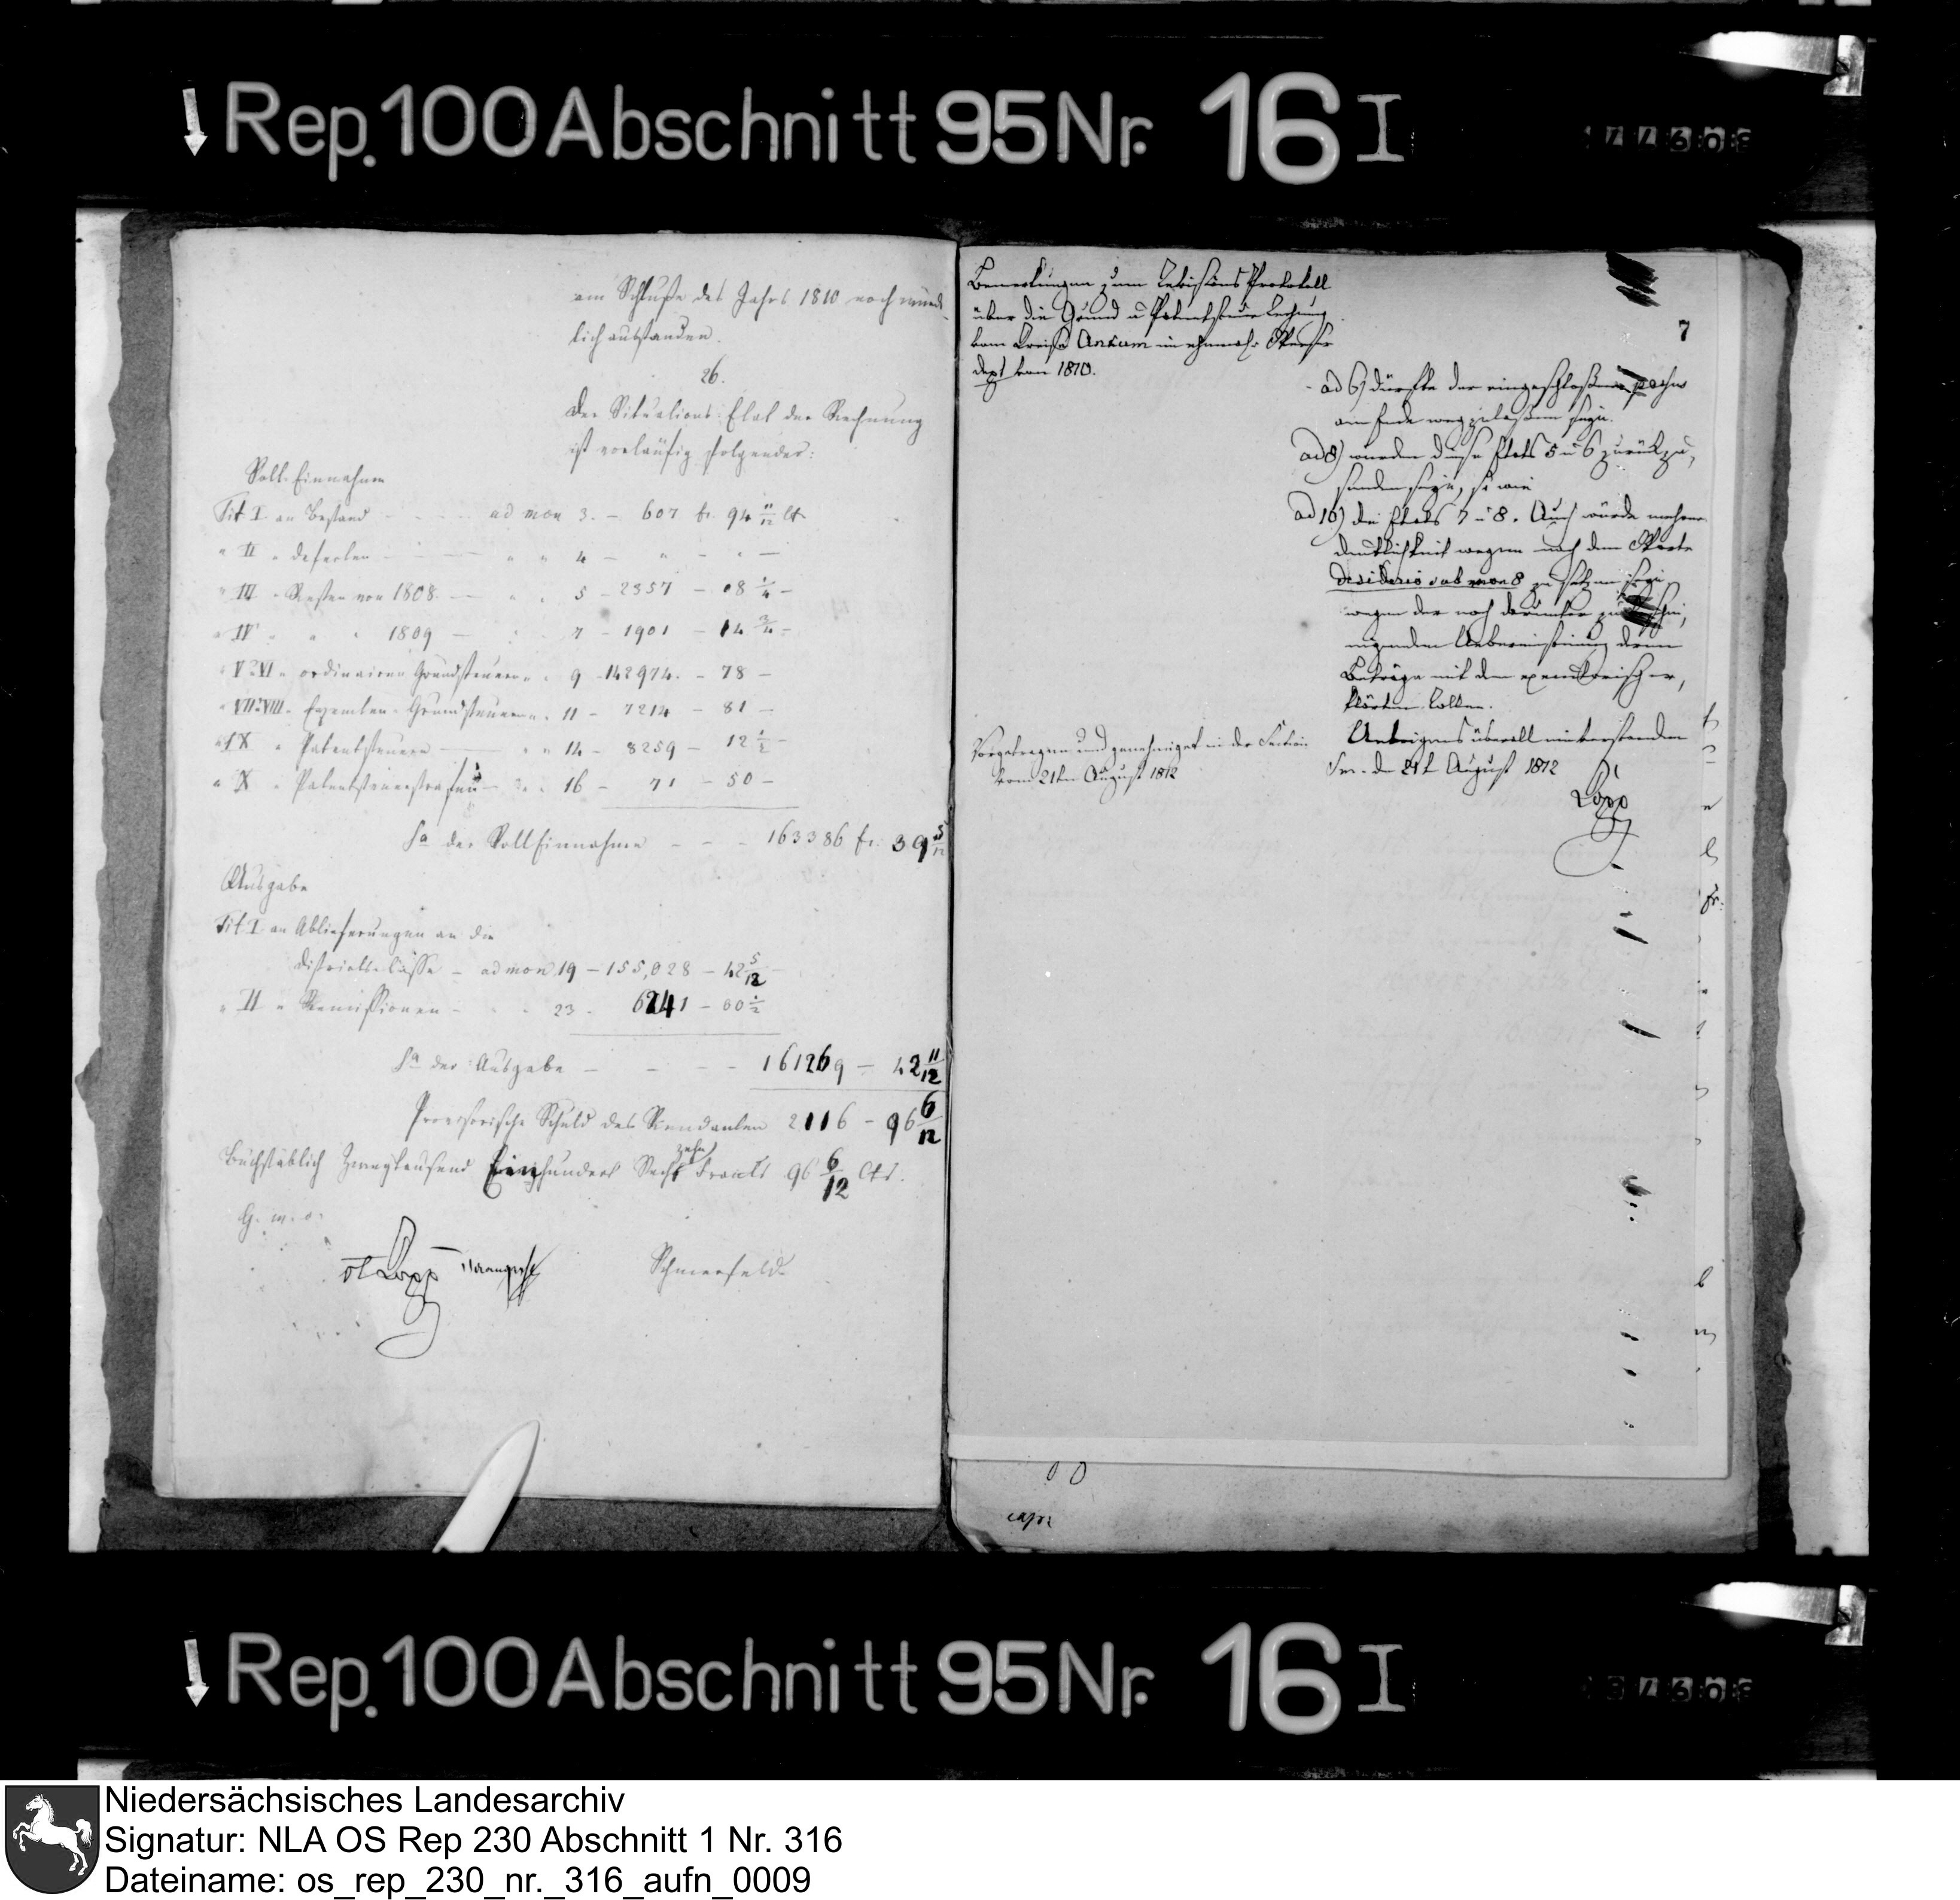 Rep. 100 Abschnitt 95 Nr. 16 I
am Schluße des Jahrs 1810 noch
lich ausstanden.
26.
Der Situations Etat der Rechnung
ist vorläufig folgender:
Soll-Einnahme
Tit I an Bestand - - - ad mon 3. - 607 fr. 94 11/12 Ct
" II " Defecten - - - " " 4 - " - " -
" III " Resten von 1808 - " " 5 - 2357 - 08 1/4 -
" IV " " " 1809 - " " 7 - 1901 - 14 3/4 -
" V & VI " ordinairen Grundsteuern " " 9 - 142974. - 78 -
" VII & VIII " Exemten-Grundsteuern " 11 - 7214 - 81 -
" IX " Patentsteuern - " " 14 - 8259 - 12 1/2 -
" X " Patentsteuerstrafen - " " 16 - 71 - 50 -
Sa der Soll Einnahme - - - 163386 fr. 39 5/12
Ausgabe
Tit I an Ablieferungen an die
Districts-Casse - ad mon 19 - 155,028 - 42 5/12 -
" II " Remissionen - " " 23 - 6241 - 00 1/2
Sa der Ausgabe - - - - 161269 - 42 11/12
Provisorische Schuld des Rendanten 2116 - 96 6/12
Buchstäblich Zweytausend Einhundert Sechszehn Francs 96 6/12 Cts.
G. w. o.
Lopp
Schmerfeld
Bemerkungen zum Revisions Protokoll
über die Grund u Patentsteuer Rechnung
vom Kreise Ankum im ehmal. Weser
dept von 1810.
7
- ad 6) dürfte der eingeschloßene passus
am Ende wegzulaßen seyn.
ad 8) werden diese Etats 5 u 6 zurückzu,
senden seyn, so wie
ad 10) die Etats 7 u 8. Auch würde mehrer
Deutlichkeit wegen nach dem Worte
Desiderio sub mon 8 zu setzen seyn
wegen der noch darunter
Uebereinstimmung deren
Beträge mit den
Uebrigens überall einverstanden
d. 21t August 1812
Lopp
Vorgetragen und genehmiget in der Section
vom 21ten August 1812
Rep. 100 Abschnitt 95 Nr. 16 I
Niedersächsisches Landesarchiv
Signatur: NLA OS Rep 230 Abschnitt 1 Nr. 316
Dateiname: os_rep_230_nr._316_aufn_0009